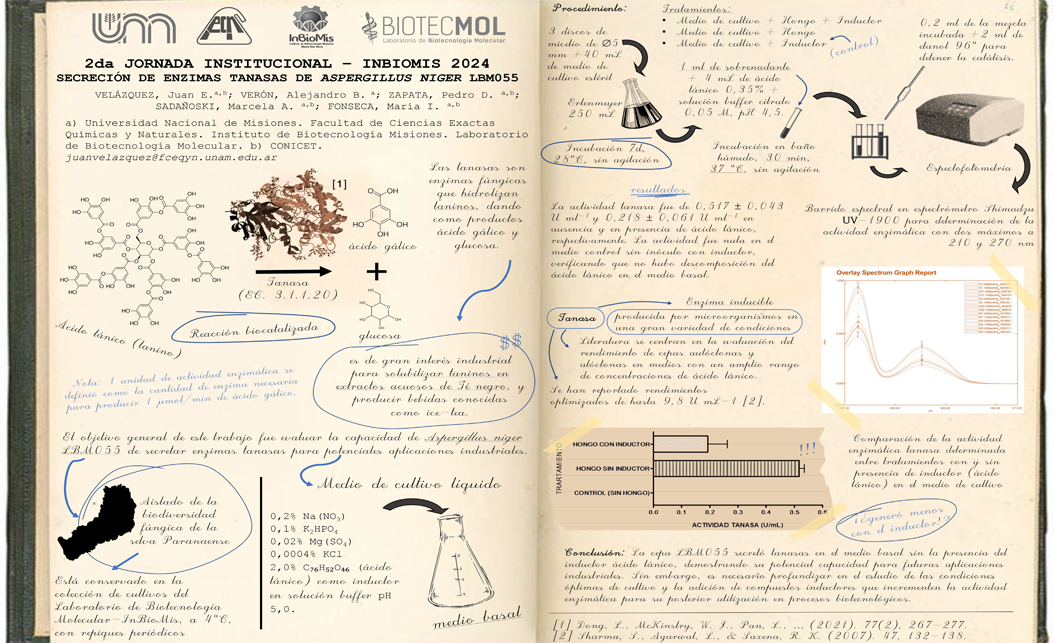 UNM
FCEQyN
InBioMis
BIOTECMOL
Laboratorio de Biotecnología Molecular
2da JORNADA INSTITUCIONAL – INBIOMIS 2024
SECRECIÓN DE ENZIMAS TANASAS DE ASPERGILLUS NIGER LBM055
VELÁZQUEZ, Juan E.a,b; VERÓN, Alejandro B. a; ZAPATA, Pedro D. a,b;
SADAÑOSKI, Marcela A. a,b; FONSECA, Maria I. a,b
a) Universidad Nacional de Misiones. Facultad de Ciencias Exactas
Químicas y Naturales. Instituto de Biotecnología Misiones. Laboratorio
de Biotecnología Molecular. b) CONICET.
juanvelazquez@fceqyn.unam.edu.ar
[1]
Las tanasas son
enzimas fúngicas
que hidrolizan
taninos, dando
como productos
ácido gálico y
glucosa.
ácido gálico
Tanasa
(EC. 3.1.1.20)
+
glucosa
Acido tánico (tanino)
Reacción biocatalizada
$$
es de gran interés industrial
para solubilizar taninos en
extractos acuosos de Té negro, y
producir bebidas conocidas
como ice-tea.
Nota: 1 unidad de actividad enzimática se
definió como la cantidad de enzima necesaria
para producir 1 µmol/min de ácido gálico.
El objetivo general de este trabajo fue evaluar la capacidad de Aspergillus niger
LBM055 de secretar enzimas tanasas para potenciales aplicaciones industriales.
Aislado de la
biodiversidad
fúngica de la
selva Paranaense
Está conservado en la
colección de cultivos del
Laboratorio de Biotecnología
Molecular-InBioMis, a 4°C,
con repiques periódicos
Medio de cultivo líquido
0,2% Na(NO3)
0,1% K2HPO4
0,02% Mg(SO4)
0,0004% KCl
2,0% C76H52O46 (ácido
tánico) como inductor
en solución buffer pH
5,0.
medio basal
Procedimiento:
3 discos de
micelio de Ø5
mm +40 mL
de medio de
cultivo estéril
Erlenmeyer
250 mL
Incubación 7d,
28°C, sin agitación
Tratamientos:
• Medio de cultivo + Hongo + Inductor
• Medio de cultivo + Hongo
• Medio de cultivo + Inductor
(control)
1 ml de sobrenadante
+ 4 mL de ácido
tánico 0,35% +
solución buffer citrato
0,05 M, pH 4,5.
Incubación en baño
húmedo, 30 min,
37 °C, sin agitación
0,2 ml de la mezcla
incubada + 2 ml de
etanol 96° para
detener la catálisis.
Espectofotometría
Barrido espectral en espectrómetro Shimadzu
UV-1900 para determinación de la
actividad enzimática con dos máximos a
210 y 270 nm
resultados
La actividad tanasa fue de 0,517 ± 0,043
U ml-1 y 0,218 ± 0,061 U ml-1 en
ausencia y en presencia de ácido tánico,
respectivamente. La actividad fue nula en el
medio control sin inóculo con inductor,
verificando que no hubo descomposición del
ácido tánico en el medio basal.
Tanasa
Enzima inducible
producida por microorganismos en
una gran variedad de condiciones
Literatura se centran en la evaluación del
rendimiento de cepas autóctonas y
alóctonas en medios con un amplio range
de concentraciones de ácido tánico.
Se han reportado rendimientos
optimizados de hasta 9,8 U mL-1 [2].
Overlay Spectrum Graph Report
TRARTAMIENTO
HONGO CON INDUCTOR
HONGO SIN INDUCTOR
CONTROL (SIN HONGO)
!!!
0.0 0.1 0.2 0.3 0.4 0.5 0.6
ACTIVIDAD TANASA (U/mL)
Comparación de la actividad
enzimática tanasa determinada
entre tratamientos con y sin
presencia de inductor (ácido
tánico) en el medio de cultivo
¡¿generó menos
con el inductor!?
Conclusión: La cepa LBM055 secretó tanasas en el medio basal sin la presencia del
inductor ácido tánico, demostrando su potencial capacidad para futuras aplicaciones
industriales. Sin embargo, es necesario profundizar en el estudio de las condiciones
óptimas de cultivo y la adición de compuestos inductores que incrementen la actividad
enzimática para su posterior utilización en procesos biotecnológicos.
[1] Dong, L., McKinstry, W. J., Pan, L., ... (2021). 77(2), 267-277.
[2] Sharma, S., Agarwal, L., & Saxena, R. K. (2007). 47, 132-138.